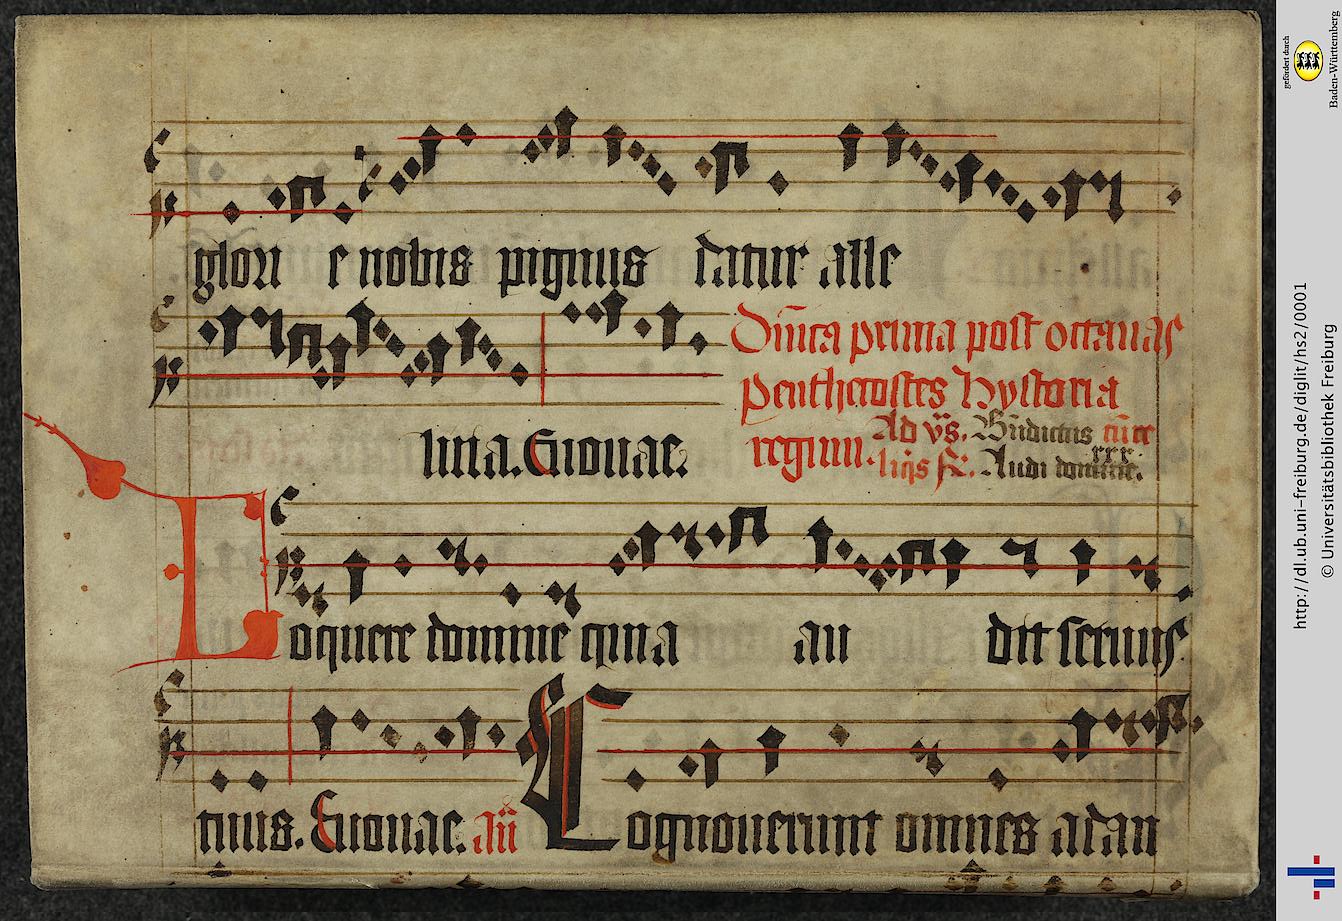 glori e nobis pignus datur alle
Dn̄ica prima post octauas
penthecostes hystoria
luia. Euouae.
regum. Ad vs̄. Bn̄dictus
Audi domine.
Loquere domine quia au dit seruus
tuus. Euouae. an̄ Cognouerunt omnes a dan
gefördert durch
Baden-Württemberg
http://dl.ub.uni-freiburg.de/diglit/hs2/0001
© Universitätsbibliothek Freiburg